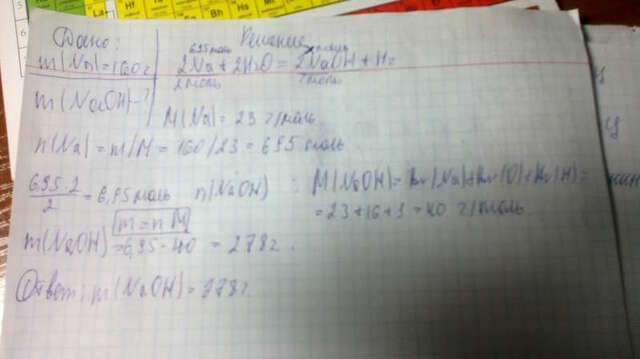 Дано:
Решение
m(Na)=160г
6,95 моль
2Na + 2H2O = 2NaOH + H2
2 моль
2 моль
m(NaOH)-?
M(Na) = 23 г/моль
n(Na) = m/M = 160/23 = 6,95 моль
6,95·2/2 = 6,95 моль n(NaOH)
M(NaOH) = Ar(Na)+Ar(O)+Ar(H) =
= 23+16+1 = 40 г/моль
m = n M
m(NaOH) = 6,95·40 = 278г.
Ответ: m(NaOH) = 278г.
La
Hf